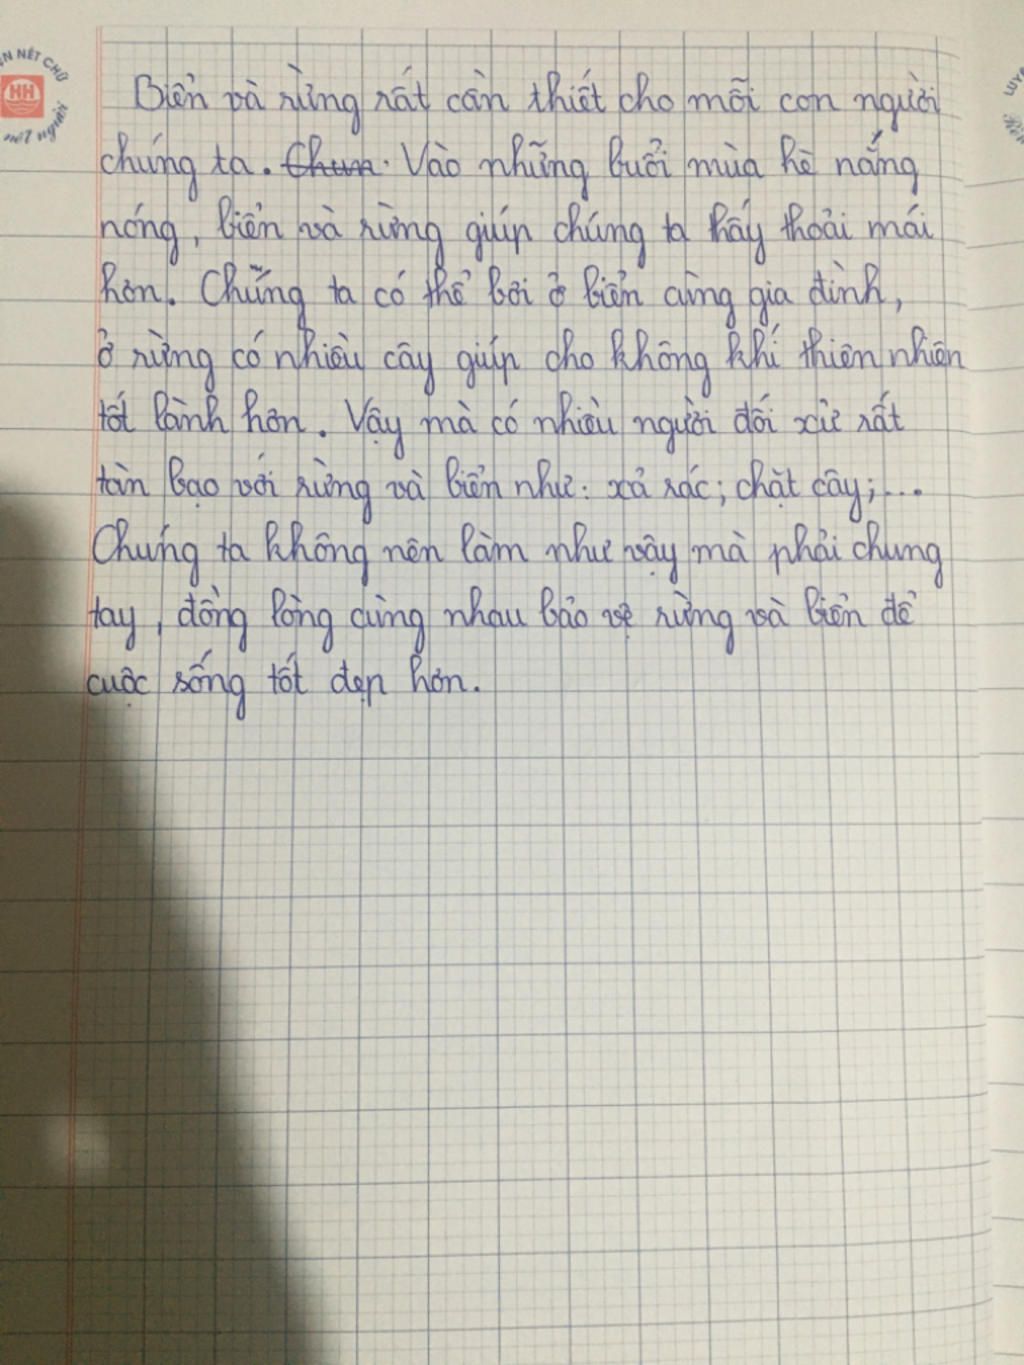 Biển và rừng rất cần thiết cho mỗi con người
chúng ta. Chun. Vào những buổi mùa hè nắng
nóng, biển và rừng giúp chúng ta hấy thoải mái
hơn. Chúng ta có thể bơi ở biển cùng gia đình,
ở rừng có nhiều cây giúp cho không khí thiên nhiên
tốt lành hơn. Vậy mà có nhiều người đối xử rất
tàn bạo với rừng và biển như: xả rác; chặt cây;...
Chúng ta không nên làm như vậy mà phải chung
tay, đồng lòng cùng nhau bảo vệ rừng và biển để
cuộc sống tốt đẹp hơn.
NÉT CHỮ
HH
nét người
LUYỆ